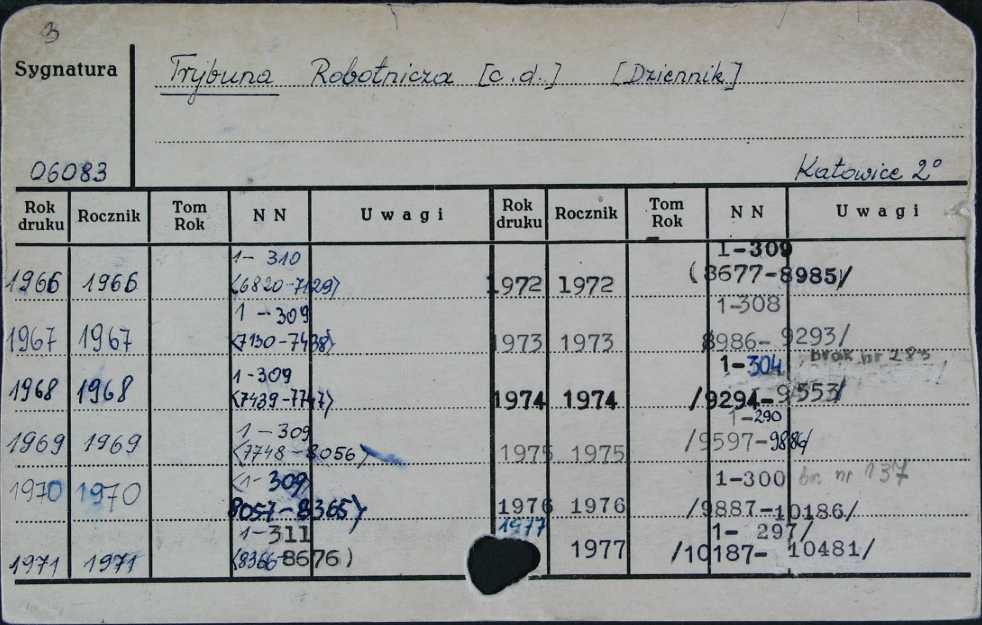 3
Sygnatura
Trybuna Robotnicza [c.d.] [Dziennik]
06083
Katowice 2°
Rok druku Rocznik Tom Rok NN Uwagi Rok druku Rocznik Tom Rok NN Uwagi
1-310
1966 1966 <6820-7129>
1-309
1972 1972 (8677-8985/
1-309
1967 1967 <7130-7438>
1-308
1973 1973 8986-9293/
1-309
1968 1968 <7439-7747>
1-304 brak nr 283
1974 1974 /9294-9553/
1-309
1969 1969 <7748-8056>
1-290
1975 1975 /9597-9886/
<1-309
1970 1970 8057-8365>
1-300 br. nr 137
1976 1976 /9887-10186/
1-311
1971 1971 (8366-8676)
1977 1-297/
1977 /10187-10481/